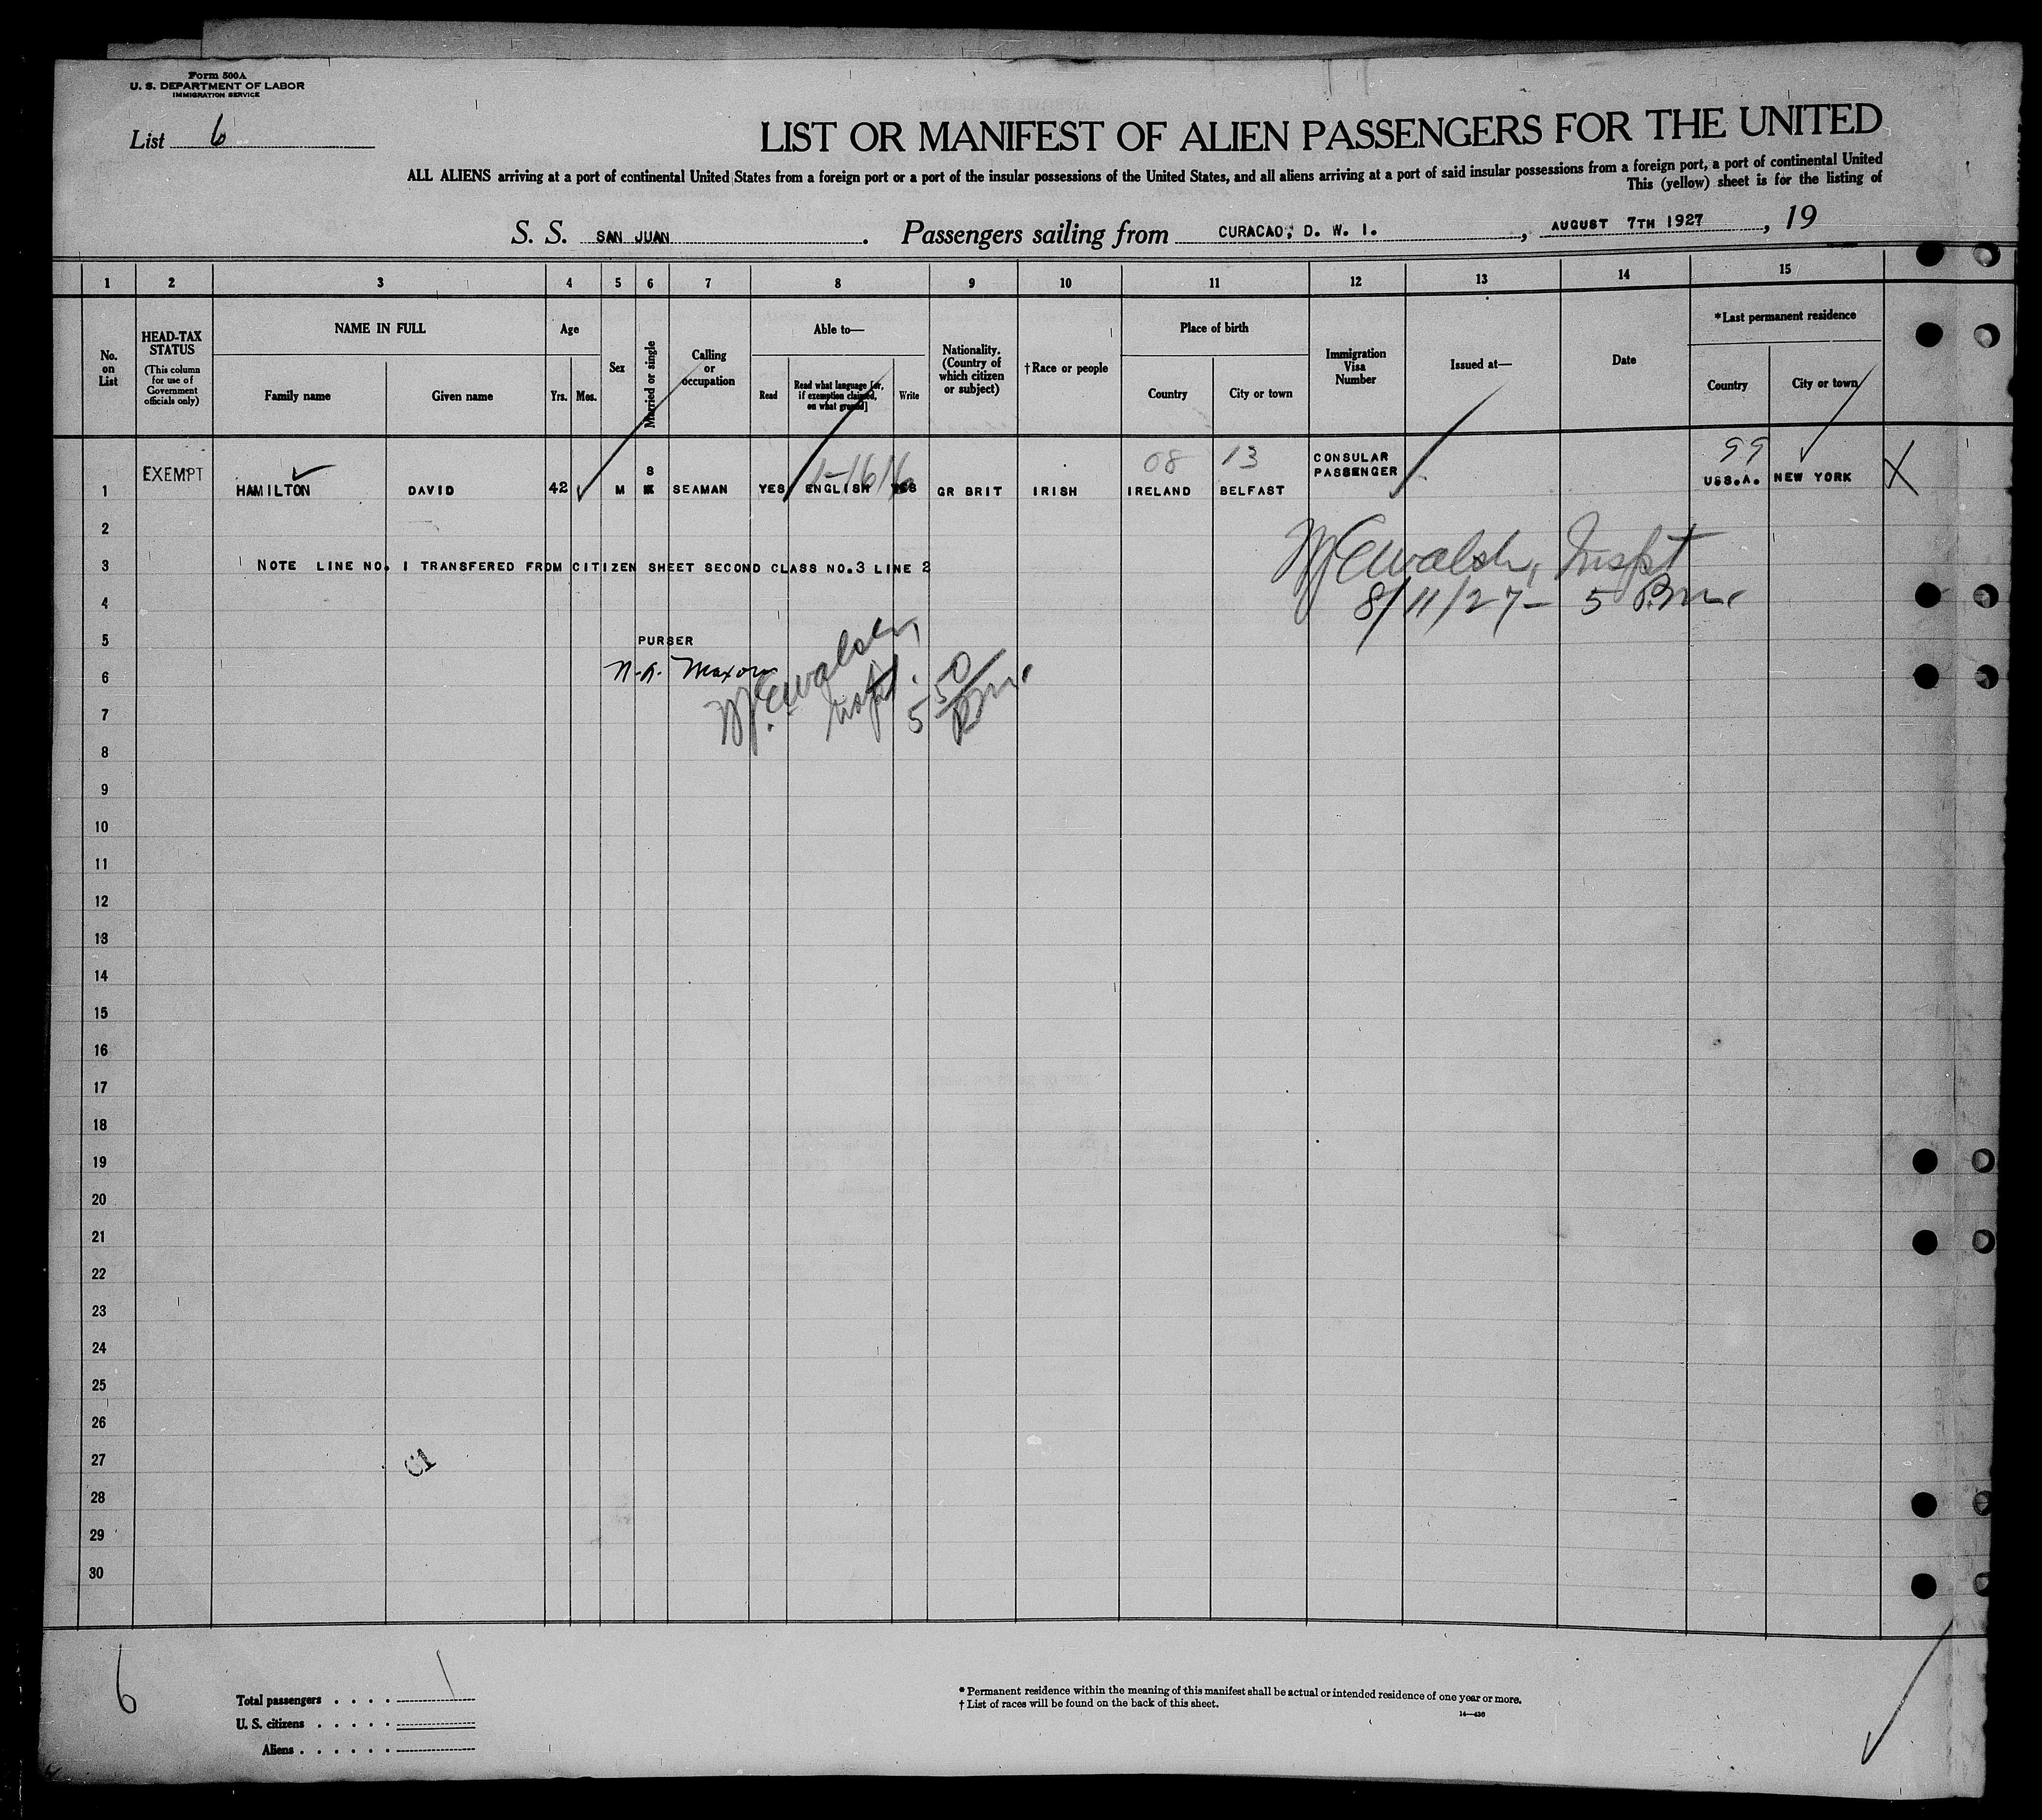 Form 500A
U. S. DEPARTMENT OF LABOR
IMMIGRATION SERVICE
List 6
LIST OR MANIFEST OF ALIEN PASSENGERS FOR THE UNITED
ALL ALIENS arriving at a port of continental United States from a foreign port or a port of the insular possessions of the United States, and all aliens arriving at a port of said insular possessions from a foreign port, a port of continental United
This (yellow) sheet is for the listing of
S. S. SAN JUAN. Passengers sailing from CURACAO, D. W. I., AUGUST 7TH 1927, 19
1 2 3 4 5 6 7 8 9 10 11 12 13 14 15
No. on List
HEAD-TAX STATUS
(This column for use of Government officials only)
NAME IN FULL
Family name
Given name
Age
Yrs. Mos.
Sex
Married or single
Calling or occupation
Able to—
Read
Read what language [or, if exemption claimed, on what ground]
Write
Nationality. (Country of which citizen or subject)
†Race or people
Place of birth
Country
City or town
Immigration Visa Number
Issued at—
Date
*Last permanent residence
Country
City or town
1-1616 08 13 99
1 EXEMPT HAMILTON DAVID 42 M S SEAMAN YES ENGLISH YES GR BRIT IRISH IRELAND BELFAST CONSULAR PASSENGER USS.A. NEW YORK X
2
3 NOTE LINE NO. 1 TRANSFERED FROM CITIZEN SHEET SECOND CLASS NO.3 LINE 2
Walsh, Inspt
4 8/11/27 - 5 P.M.
5 PURSER
6
Walsh, Inspt. 5 50 PM.
7
8
9
10
11
12
13
14
15
16
17
18
19
20
21
22
23
24
25
26
27
28
29
30
6
Total passengers . . . . 1
U. S. citizens . . . . .
Aliens . . . . . .
* Permanent residence within the meaning of this manifest shall be actual or intended residence of one year or more.
† List of races will be found on the back of this sheet.
14—436